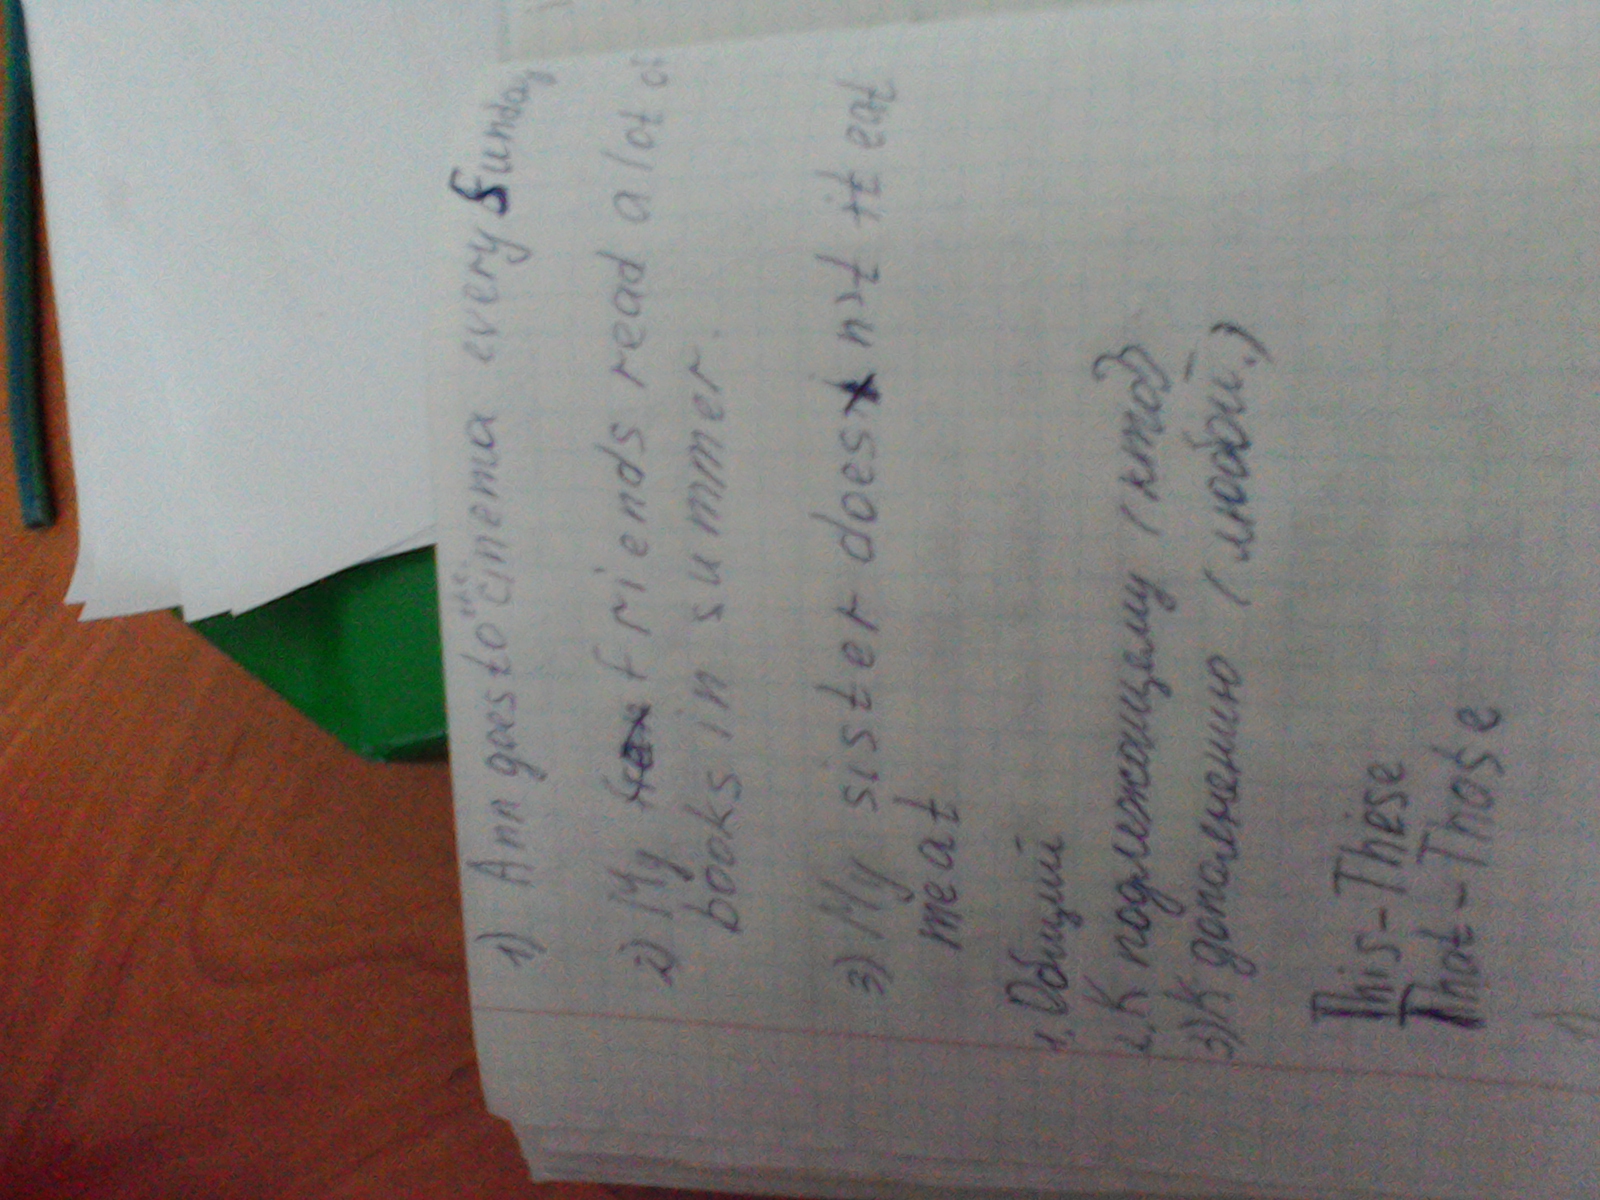 1) Ann goes to the cinema every Sunday
2) My friends read a lot of
books in summer.
3) My sister doesn't it eat
meat
1. Общий
2. К подлежащему (кто?)
3) К дополнению (любой.)
This - These
That - Those
1)